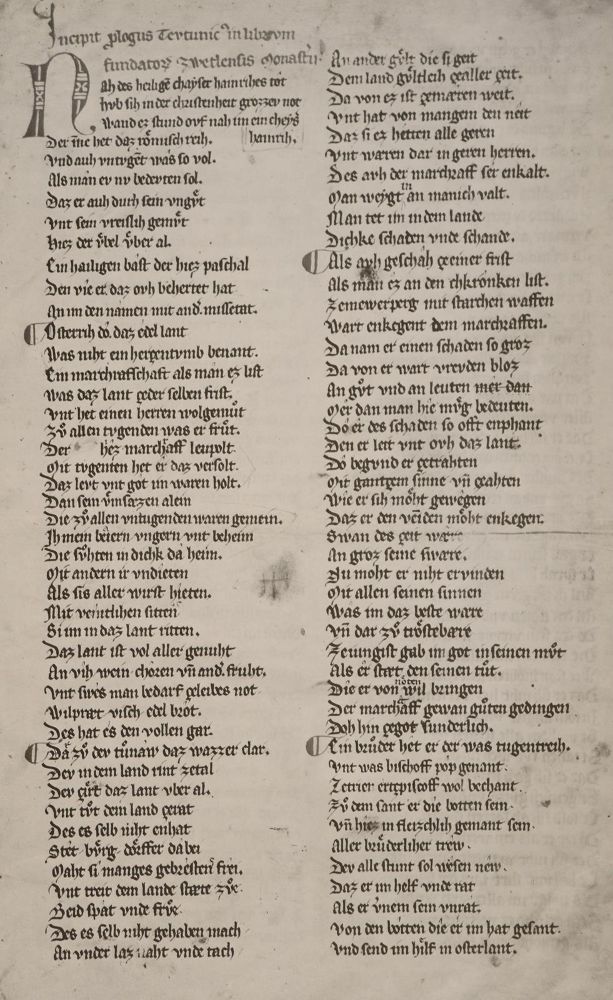 Incipit prologus Tevtunicus in librvm
fundatorum Zwetlensis Monasterii
Nah des heilige chayser hainrihes tot
hvb sih in der christenheit grozzev not
Wand ez stund ovf nah im ein cheyser
Der ime het daz romisch reih. hainrih.
Vnd auh vntvget was so vol.
Als man ev nv bedevten sol.
Daz er auh durh sein vngvt
Vnt sein vreislih gemvt
Hiez der vbel vber al.
Ein hailigen babst der hiez paschal
Den vie er. daz ovh behertet hat
An im den namen mit and. missetat.
Osterrih do. daz edel lant
Was niht ein herzentvmb benant.
Ein marchraffschaft als man ez list
Was daz lant zeder selben frist.
Vnt het einen herren wolgemut
Zv allen tvgenden was er frut.
Der hiez marchraff leupolt.
Mit tvgenten het er daz versolt.
Daz levt vnt got im waren holt.
Dan sein vmsaezzen alein
Die zv allen vntugenden waren gemein.
Jh mein beiern vngern vnt beheim
Die suhten in dichk da heim.
Mit andern ir vndieten
Als sis aller wirst hieten.
Mit veintlihen sitten
Si im in daz lant ritten.
Daz lant ist vol aller genuht
An vih wein choren vn and. fruht.
Vnt swes man bedarf zeleibes not
Wilpraet visch edel brot.
Des hat es den vollen gar.
Da zv dev tunaw daz wazzer clar.
Dev in dem land rint zetal
Dev zirt daz lant vber al.
Vnt tvt dem land gerat
Des es selb niht enhat
Stet bvrg dorffer da bei
Maht si manges gebresten frei.
Vnt treit dem lande staete zve.
Beid spat vnde frve.
Des es selb niht gehaben mach
An vnder laz naht vnde tach
An ander gvlt die si geit
Dem land gvltleih zealler zeit.
Da von ez ist gemaeren weit.
Vnt hat von mangem den neit
Daz si ez hetten alle geren
Vnt waren dar in geren herren.
Des avh der marchraff ser enkalt.
Man weygt im an manich valt.
Man tet im in dem lande
Dichke schaden vnde schande.
Als avh geschah zeeiner frist
Als man ez an den chkronken list.
Zemewerperg mit starchen waffen
Wart enkegent dem marchraffen.
Da nam er einen schaden so groz
Da von er wart vrevden bloz
An gvt vnd an leuten mer dan
Mer dan man hie mvg bedeuten.
Do er des schaden so offt enphant
Den er leit vnt ovh daz lant.
Do begvnd er getrahten
Mit gantzem sinne vn geahten
Wie er sih moht gewegen
Daz er den veiden moht enkegen.
Swan des zeit waere
An groz seine swaere.
Nu moht er niht ervinden
Mit allen seinen sinnen
Was im daz beste waere
Vn dar zv trostebaere
Zeiungist gab im got in seinen mvt
Als er staet den seinen tut.
Die er von noten wil bringen
Der marchraff gewan guten gedingen
Doh hin zegot sunderlich.
Ein bruder het er der was tugentreih.
Vnt was bischoff pop genant.
Zetrier ertzpiscoff wol bechant
Zv dem sant er die botten sein.
Vn hiez in fleizchlih gemant sein.
Aller bruderliher trew.
Dev alle stunt sol wesen new.
Daz er im helf vnde rat
Als er vnem sein vnrat.
Von den botten die er im hat gesant.
Vnd send im hilf in osterlant.